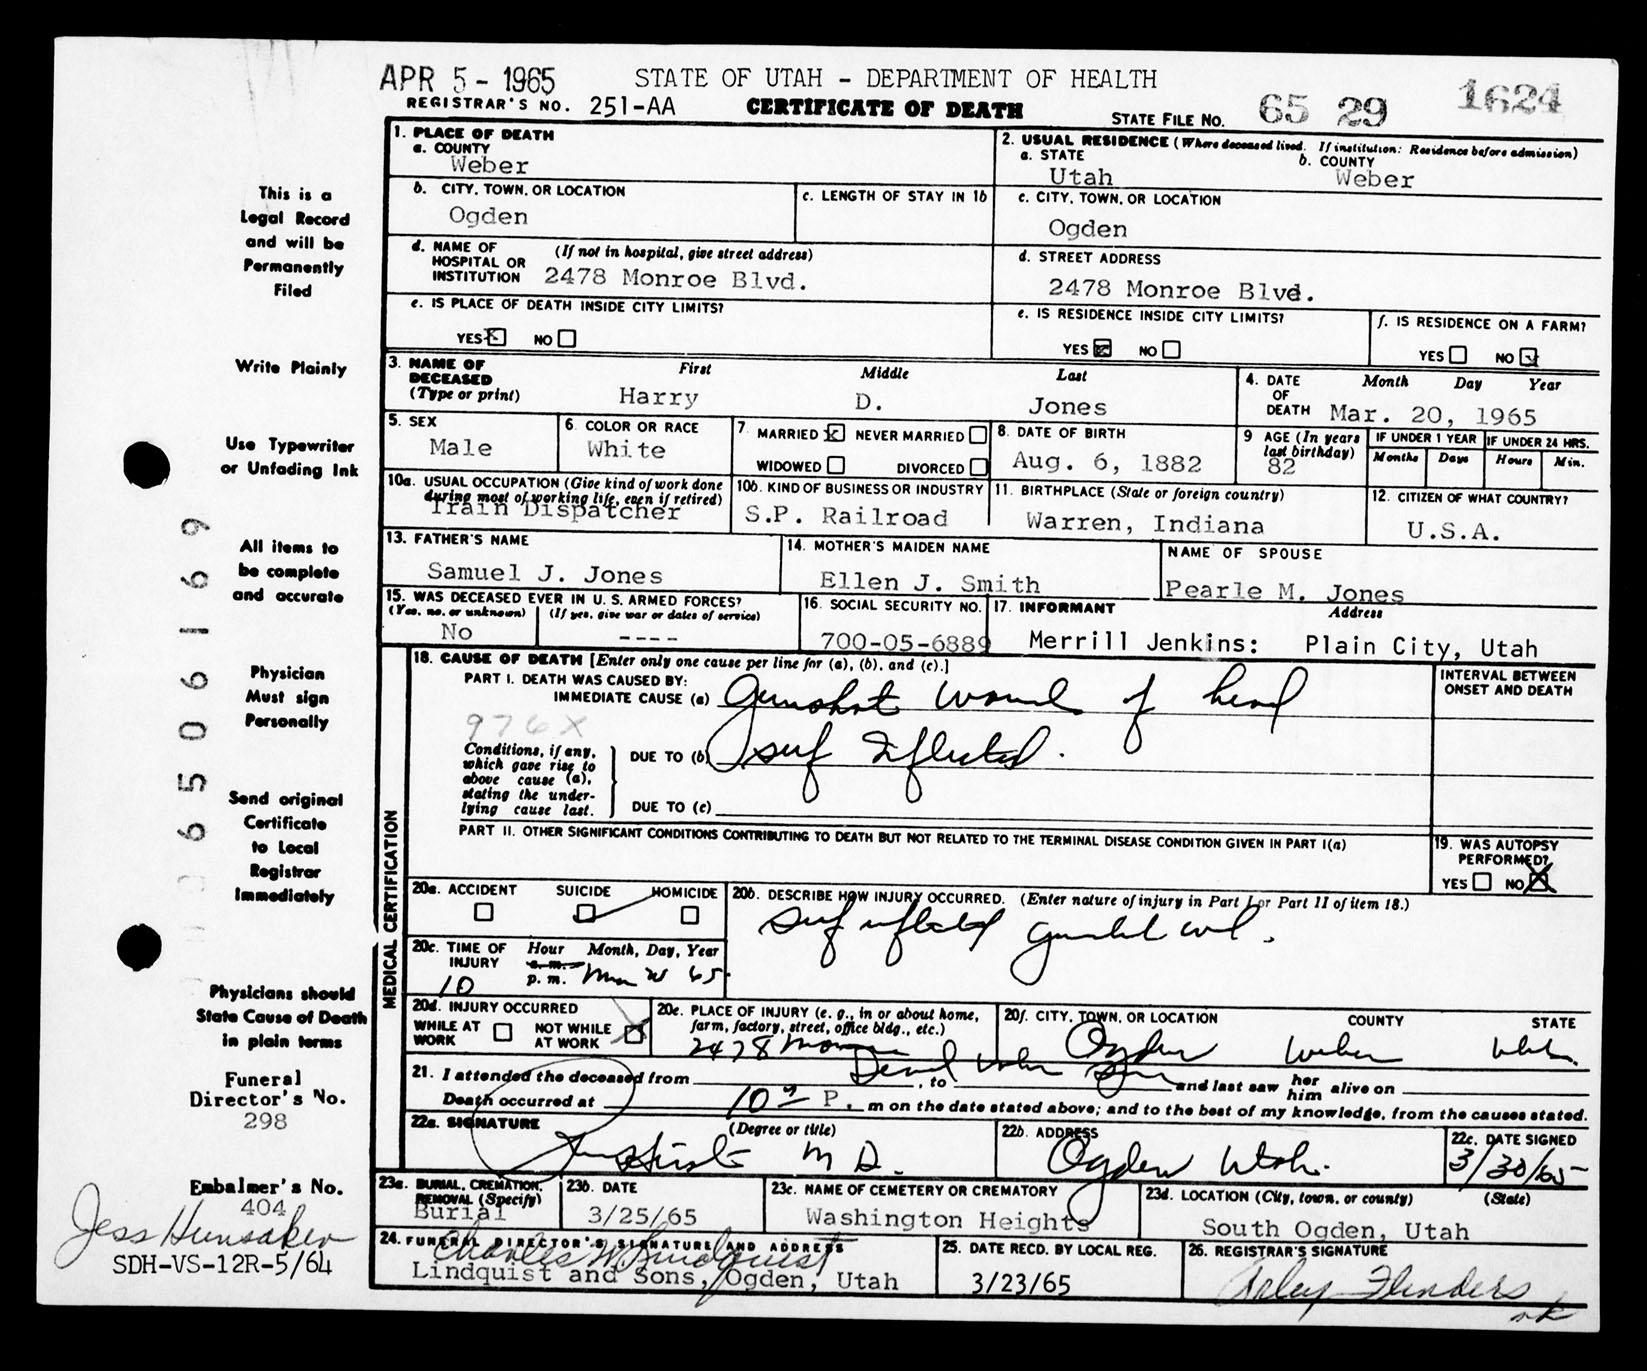 APR 5 - 1965 STATE OF UTAH - DEPARTMENT OF HEALTH
REGISTRAR'S NO. 251-AA CERTIFICATE OF DEATH STATE FILE NO. 65 29 1624
This is a
Legal Record
and will be
Permanently
Filed
Write Plainly
Use Typewriter
or Unfading Ink
All items to
be complete
and accurate
Physician
Must sign
Personally
Send original
Certificate
to Local
Registrar
Immediately
Physicians should
State Cause of Death
in plain terms
Funeral
Director's No.
298
Embalmer's No.
404
Jess Hunsaker
SDH-VS-12R-5/64
6506169
1. PLACE OF DEATH
a. COUNTY
Weber
2. USUAL RESIDENCE (Where deceased lived. If institution: Residence before admission)
a. STATE b. COUNTY
Utah Weber
b. CITY, TOWN, OR LOCATION
Ogden
c. LENGTH OF STAY IN 1b
c. CITY, TOWN, OR LOCATION
Ogden
d. NAME OF (If not in hospital, give street address)
HOSPITAL OR
INSTITUTION 2478 Monroe Blvd.
d. STREET ADDRESS
2478 Monroe Blvd.
e. IS PLACE OF DEATH INSIDE CITY LIMITS?
YES NO
e. IS RESIDENCE INSIDE CITY LIMITS?
YES NO
f. IS RESIDENCE ON A FARM?
YES NO
3. NAME OF First Middle Last
DECEASED
(Type or print) Harry D. Jones
4. DATE Month Day Year
OF
DEATH Mar. 20, 1965
5. SEX
Male
6. COLOR OR RACE
White
7. MARRIED NEVER MARRIED
WIDOWED DIVORCED
8. DATE OF BIRTH
Aug. 6, 1882
9 AGE (In years
last birthday)
82
IF UNDER 1 YEAR IF UNDER 24 HRS.
Months Days Hours Min.
10a. USUAL OCCUPATION (Give kind of work done
during most of working life, even if retired)
Train Dispatcher
10b. KIND OF BUSINESS OR INDUSTRY
S.P. Railroad
11. BIRTHPLACE (State or foreign country)
Warren, Indiana
12. CITIZEN OF WHAT COUNTRY?
U.S.A.
13. FATHER'S NAME
Samuel J. Jones
14. MOTHER'S MAIDEN NAME
Ellen J. Smith
NAME OF SPOUSE
Pearle M. Jones
15. WAS DECEASED EVER IN U. S. ARMED FORCES?
(Yes, no, or unknown) (If yes, give war or dates of service)
No ----
16. SOCIAL SECURITY NO.
700-05-6889
17. INFORMANT Address
Merrill Jenkins: Plain City, Utah
MEDICAL CERTIFICATION
18. CAUSE OF DEATH [Enter only one cause per line for (a), (b), and (c).]
PART I. DEATH WAS CAUSED BY:
IMMEDIATE CAUSE (a) Gunshot wound of head
976X
Conditions, if any,
which gave rise to
above cause (a),
stating the under-
lying cause last.
DUE TO (b) self Inflicted.
DUE TO (c)
INTERVAL BETWEEN
ONSET AND DEATH
PART II. OTHER SIGNIFICANT CONDITIONS CONTRIBUTING TO DEATH BUT NOT RELATED TO THE TERMINAL DISEASE CONDITION GIVEN IN PART I(a)
19. WAS AUTOPSY
PERFORMED?
YES NO
20a. ACCIDENT SUICIDE HOMICIDE
20b. DESCRIBE HOW INJURY OCCURRED. (Enter nature of injury in Part I or Part II of item 18.)
self inflicted gunshot wd.
20c. TIME OF Hour Month, Day, Year
INJURY a.m.
10 p.m. Mar 65
20d. INJURY OCCURRED
WHILE AT NOT WHILE
WORK AT WORK
20e. PLACE OF INJURY (e. g., in or about home,
farm, factory, street, office bldg., etc.)
2478 Monroe
20f. CITY, TOWN, OR LOCATION COUNTY STATE
Ogden Weber Utah
21. I attended the deceased from , to and last saw her him alive on
Death occurred at 10 P. m on the date stated above; and to the best of my knowledge, from the causes stated.
22a. SIGNATURE (Degree or title)
M D.
22b. ADDRESS
Ogden Utah.
22c. DATE SIGNED
3/30/65
23a. BURIAL, CREMATION,
REMOVAL (Specify)
Burial
23b. DATE
3/25/65
23c. NAME OF CEMETERY OR CREMATORY
Washington Heights
23d. LOCATION (City, town, or county) (State)
South Ogden, Utah
24. FUNERAL DIRECTOR'S SIGNATURE AND ADDRESS
Charles W Lindquist
Lindquist and Sons, Ogden, Utah
25. DATE RECD. BY LOCAL REG.
3/23/65
26. REGISTRAR'S SIGNATURE
Arley Flinders